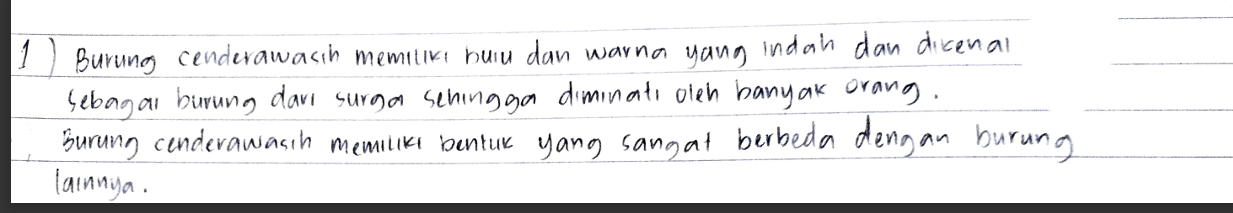 1) Burung cenderawasih memiliki bulu dan warna yang indah dan dikenal
sebagai burung dari surga sehingga diminati oleh banyak orang.
Burung cenderawasih memiliki bentuk yang sangat berbeda dengan burung
lainnya.